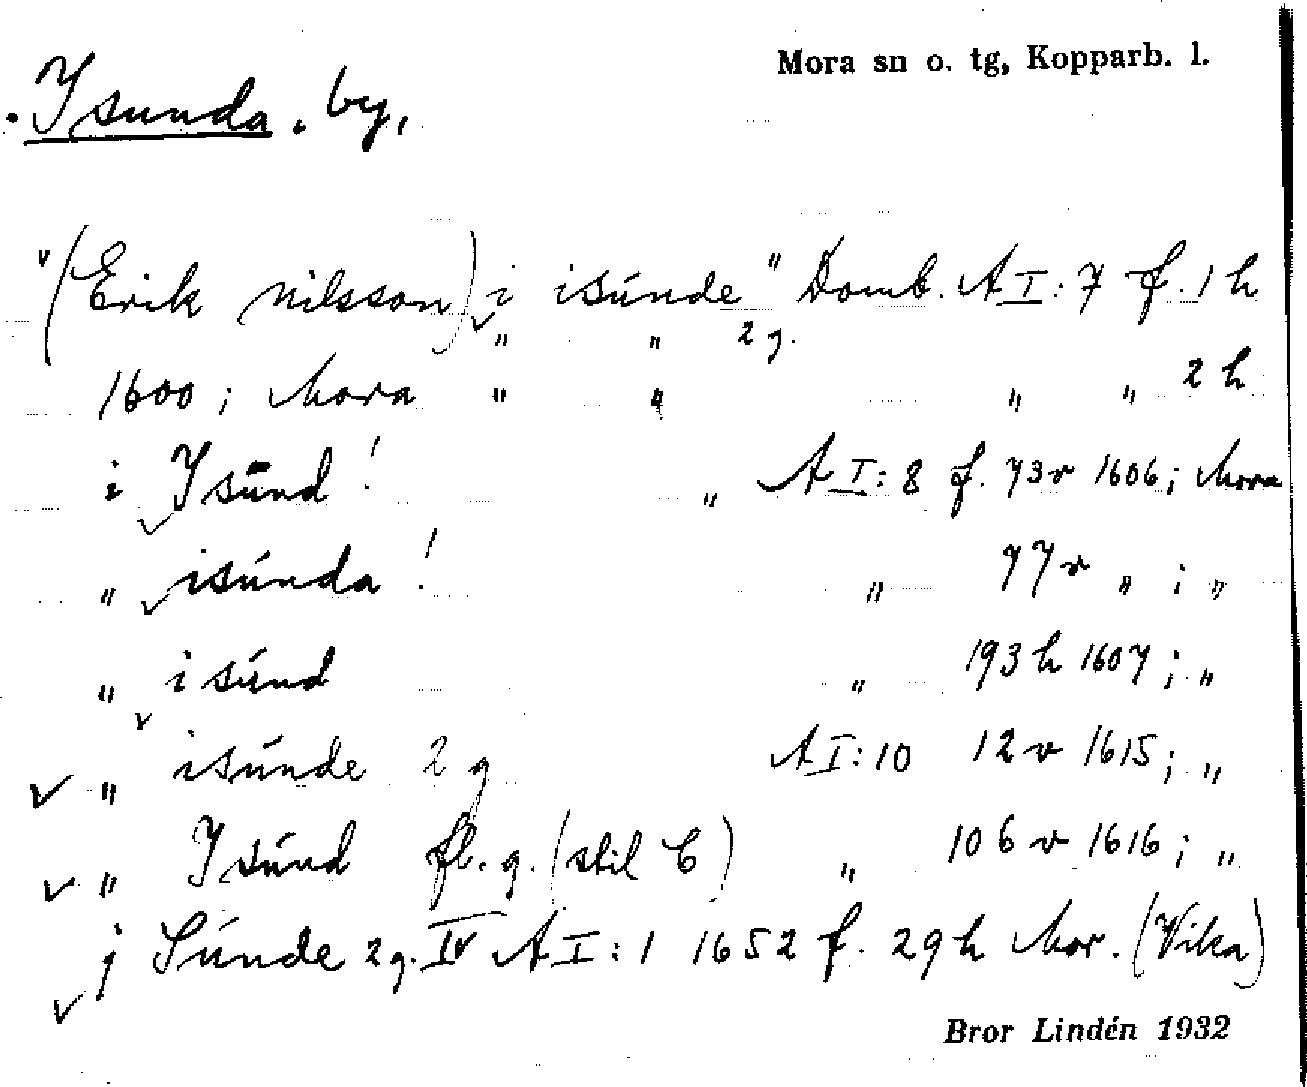 Mora sn o. tg, Kopparb. l.
Isunda. by,
"(Erik Nilsson) i isúnde" Domb. A I: 7 f. 1 h
" " 2 g.
1600; Mora " " " " 2 h
i Isŭnd! " A I: 8 f. 73v 1606; Mora
" isúnda! " 77v " ; "
" isúnd " 193 h 1607; "
" isúnde 2 g A I: 10 12 v 1615; "
" Isúnd fl. g. (stil C) " 106 v 1616; "
j Súnde 2 g. IV A I: 1 1652 f. 29 h Mor. (Vika)
Bror Lindén 1932